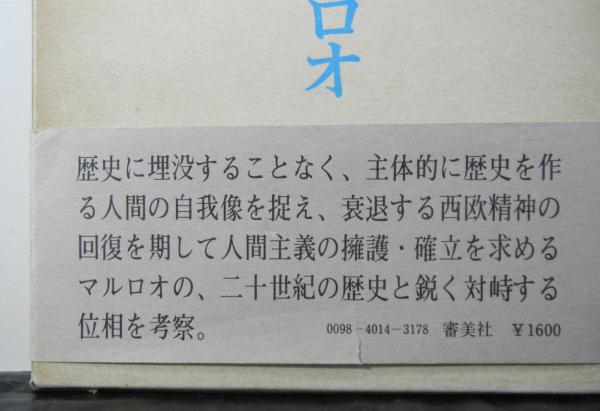 ロオ
歴史に埋没することなく、主体的に歴史を作
る人間の自我像を捉え、衰退する西欧精神の
回復を期して人間主義の擁護・確立を求める
マルロオの、二十世紀の歴史と鋭く対峙する
位相を考察。 0098-4014-3178 審美社 ￥1600